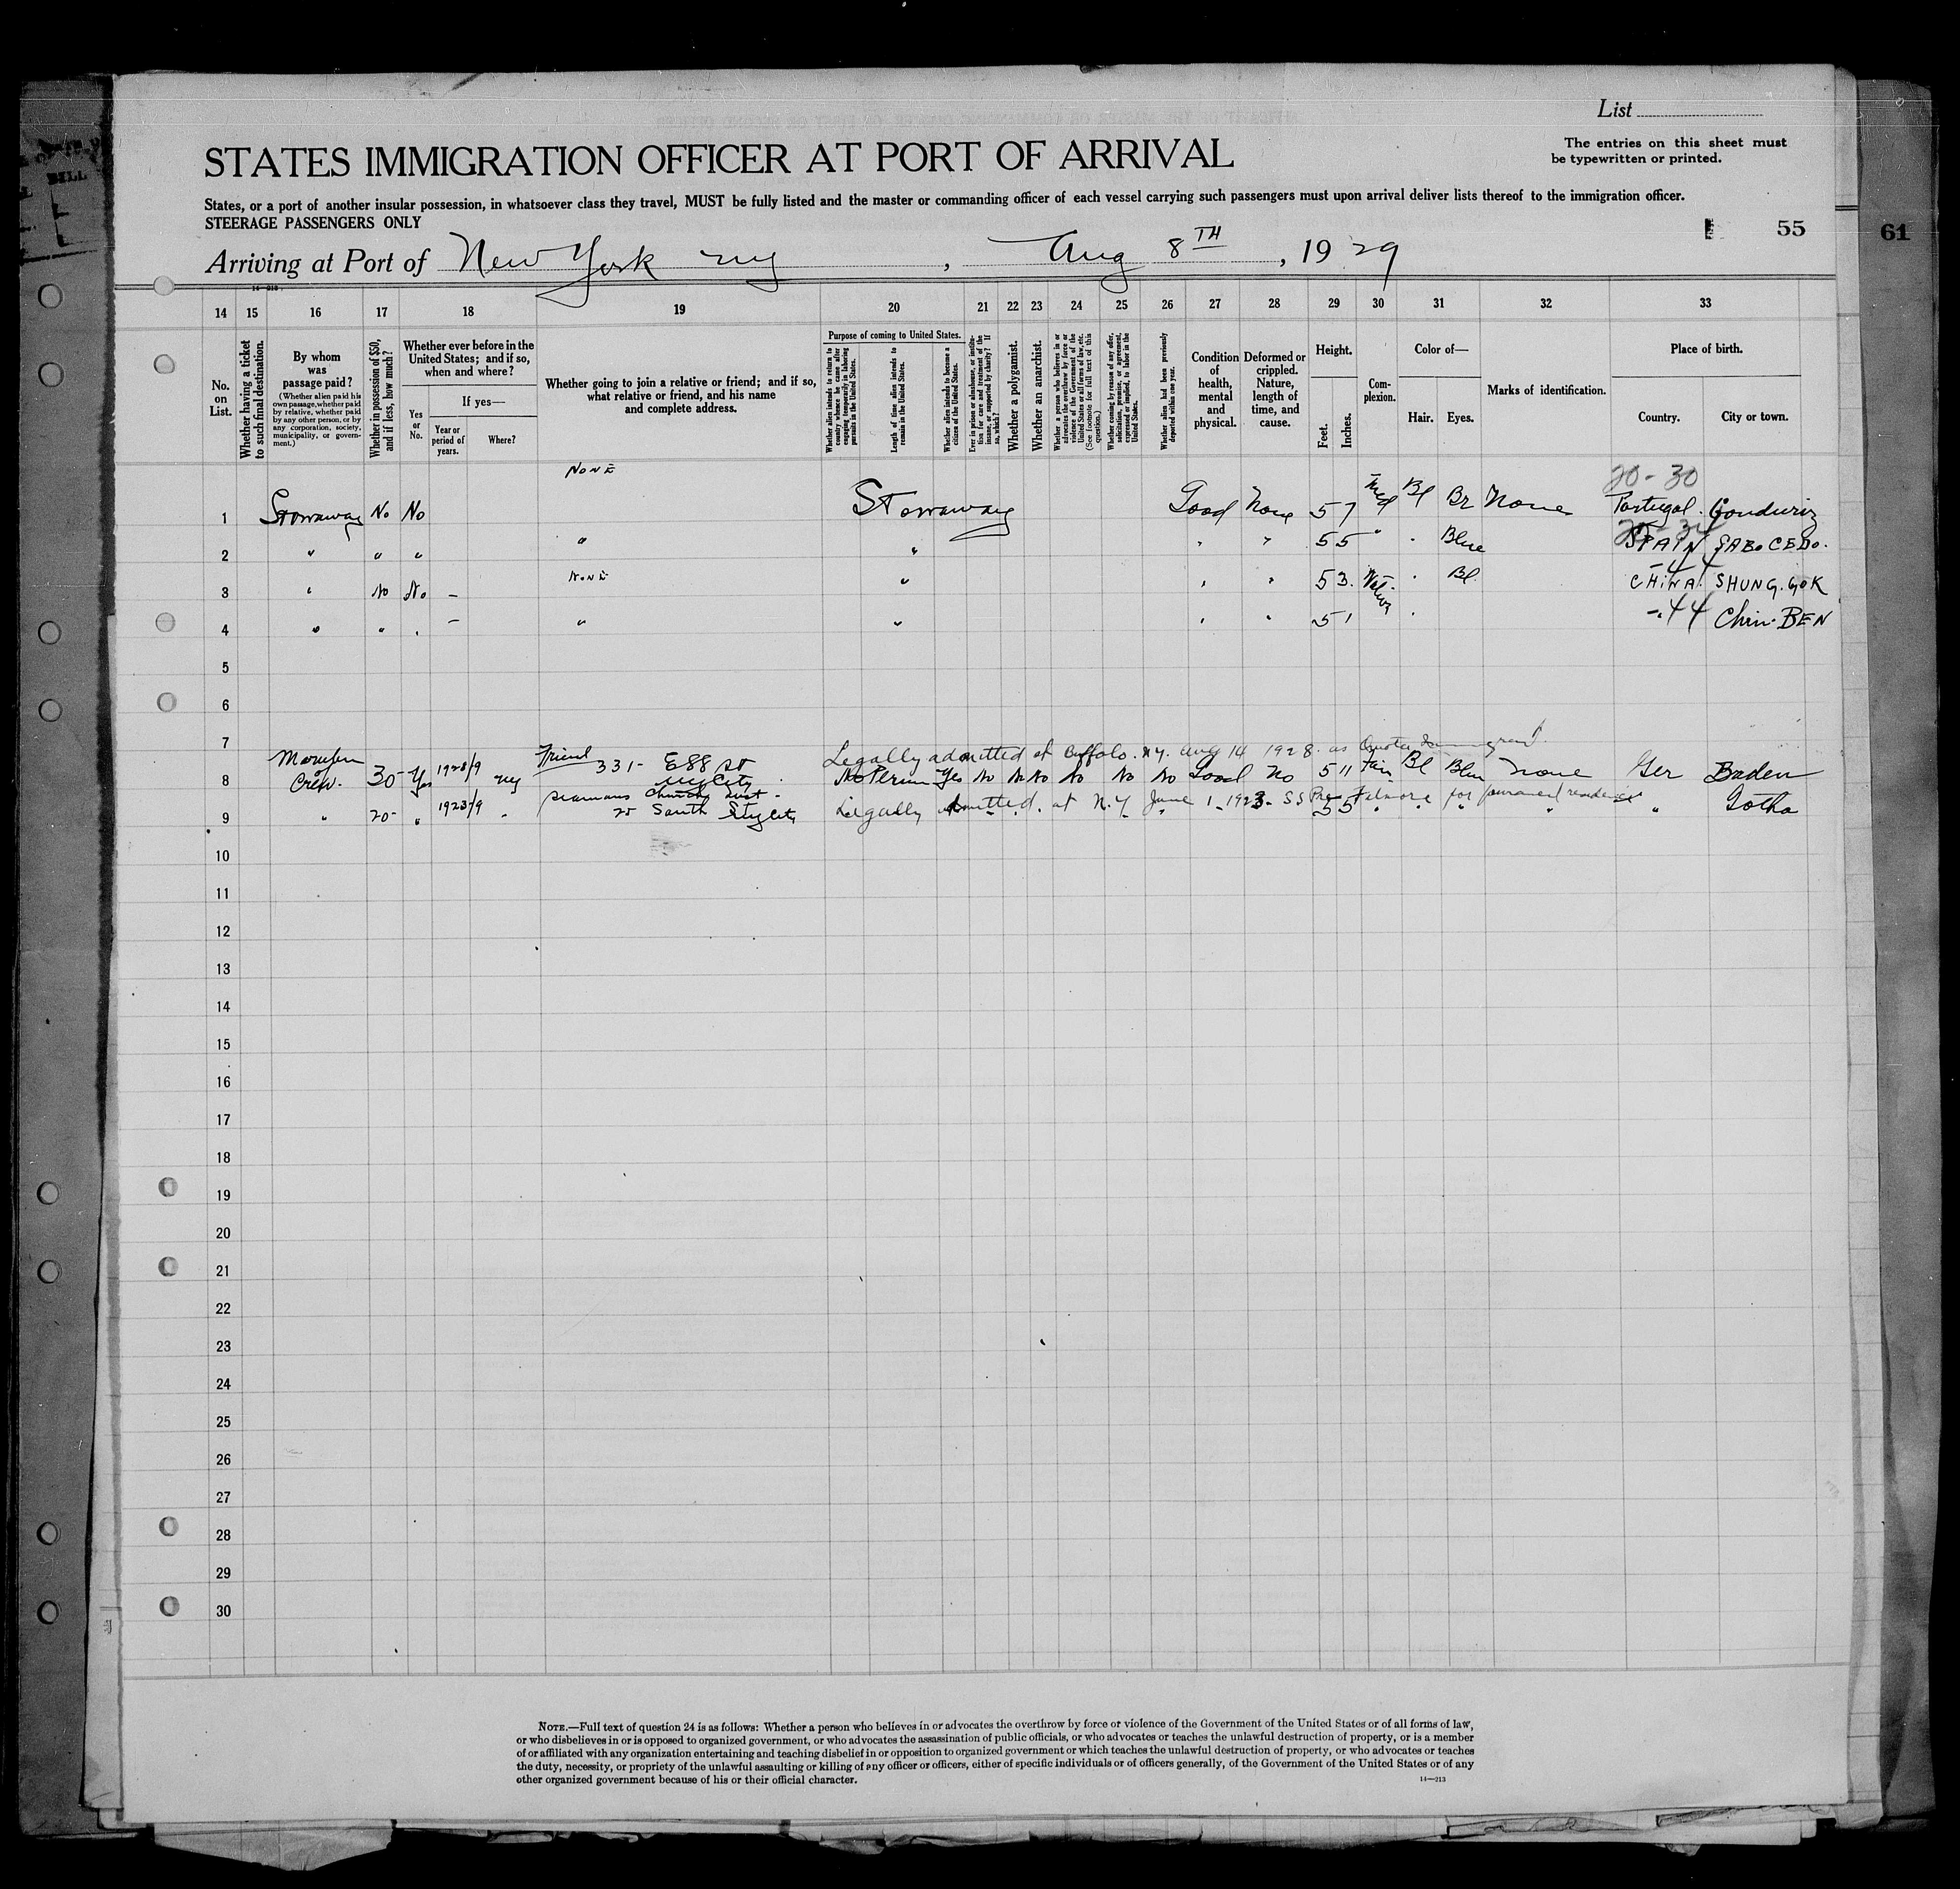 List
The entries on this sheet must
be typewritten or printed.
STATES IMMIGRATION OFFICER AT PORT OF ARRIVAL
States, or a port of another insular possession, in whatsoever class they travel, MUST be fully listed and the master or commanding officer of each vessel carrying such passengers must upon arrival deliver lists thereof to the immigration officer.
STEERAGE PASSENGERS ONLY
55
61
Arriving at Port of New York ny, Aug 8TH, 1929
14 15 16 17 18 19 20 21 22 23 24 25 26 27 28 29 30 31 32 33
No. on List.
Whether having a ticket to such final destination.
By whom was passage paid?
(Whether alien paid his own passage, whether paid by relative, whether paid by any other person, or by any corporation, society, municipality, or government.)
Whether in possession of $50, and if less, how much?
Whether ever before in the United States; and if so, when and where?
Yes or No.
If yes—
Year or period of years.
Where?
Whether going to join a relative or friend; and if so, what relative or friend, and his name and complete address.
Purpose of coming to United States.
Whether alien intends to return to country whence he came after engaging temporarily in laboring pursuits in the United States.
Length of time alien intends to remain in the United States.
Whether alien intends to become a citizen of the United States.
Ever in prison or almshouse, or institution for care and treatment of the insane, or supported by charity? If so, which?
Whether a polygamist.
Whether an anarchist.
Whether a person who believes in or advocates the overthrow by force or violence of the Government of the United States or all forms of law, etc. (See footnote for full text of this question.)
Whether coming by reason of any offer, solicitation, promise, or agreement, expressed or implied, to labor in the United States.
Whether alien had been previously deported within one year.
Condition of health, mental and physical.
Deformed or crippled. Nature, length of time, and cause.
Height.
Feet. Inches.
Complexion.
Color of—
Hair. Eyes.
Marks of identification.
Place of birth.
Country. City or town.
NONE
20-30
1 Stowaway No No Stowaway Good None 5 7 Med Bl Br None Portugal
2 " " " " " " " 5 5 " " Blue SPAIN
NONE
3 " No No — " " " 5 3 " Bl CHINA SHUNG.GOK
4 " " " — " " " " 5 1 " -.44 Chin-BEN
5
6
7
Friend Legally admitted at Buffalo. N.Y. Aug 14 1928 as Quota Immigrant
8 Crew. 30- Yes 1928/9 ny 331- E 88 St NY City No Perm Yes No No No No No No Good No 5 11 Fair Bl Blue None Ger Baden
Seamans Church Inst-
9 " 20- " 1923/9 " 25 South St NY City Legally Admitted. at N.Y June 1-1923- SS Pre Filmore for permanent residence 5 5 " " " " " Gotha
10
11
12
13
14
15
16
17
18
19
20
21
22
23
24
25
26
27
28
29
30
NOTE.—Full text of question 24 is as follows: Whether a person who believes in or advocates the overthrow by force or violence of the Government of the United States or of all forms of law,
or who disbelieves in or is opposed to organized government, or who advocates the assassination of public officials, or who advocates or teaches the unlawful destruction of property, or is a member
of or affiliated with any organization entertaining and teaching disbelief in or opposition to organized government or which teaches the unlawful destruction of property, or who advocates or teaches
the duty, necessity, or propriety of the unlawful assaulting or killing of any officer or officers, either of specific individuals or of officers generally, of the Government of the United States or of any
other organized government because of his or their official character.
14—213